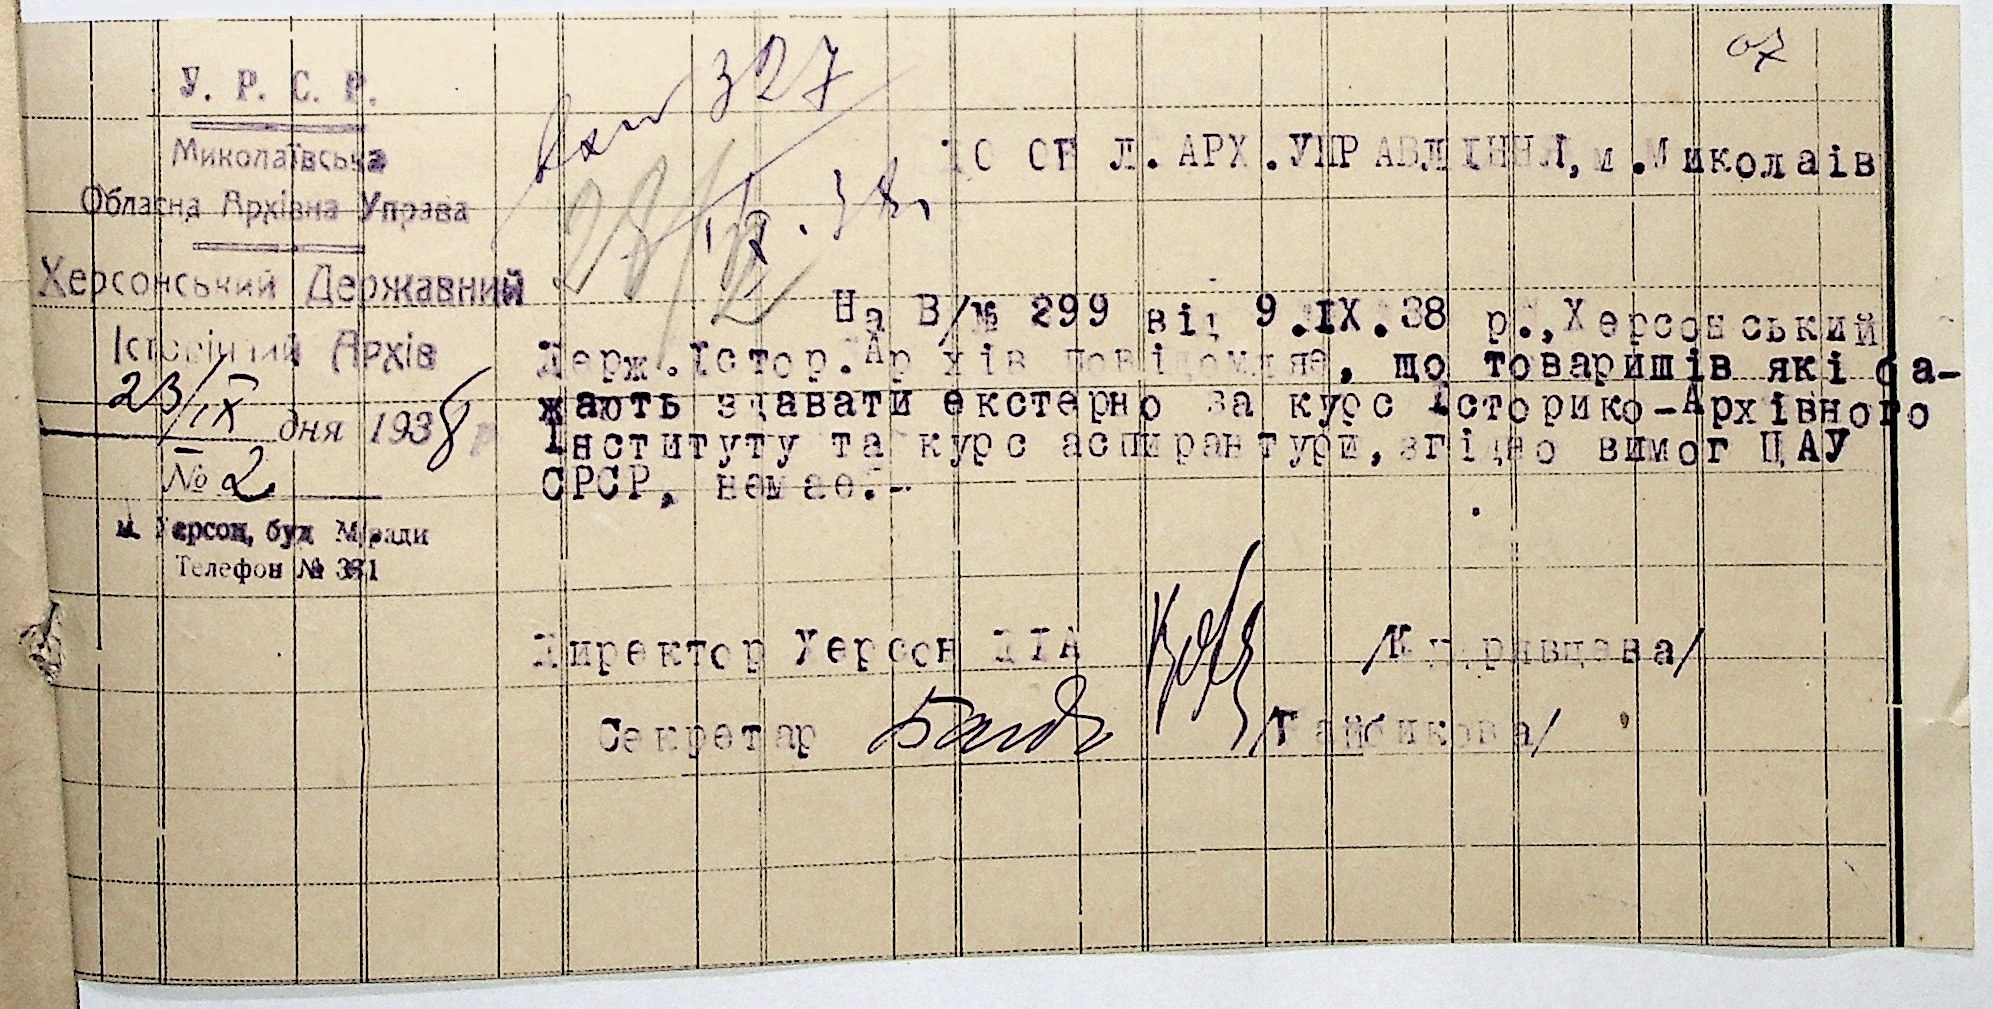 67
У. Р. С. Р.
Миколаївська
Обласна Архівна Управа
Херсонський Державний
Історічний Архів
23/IX дня 1938 р
№ 2
м. Херсон, буд Міради
Телефон №
327
28/IX.38.
ДО ОБЛ.АРХ.УПРАВЛІННЯ, м.Миколаів
На В/№ 299 від 9.IX.38 р., Херсонський
Держ.Істор.Архів повідомляє, що товаришів які ба-
жають здавати екстерно за курс Історико-Архівного
Інституту та курс аспирантури, згідно вимог ЦАУ
СРСР, немає.-
Директор Херсон ДІА /Кудрявцева/
Секретар /Байбикова/